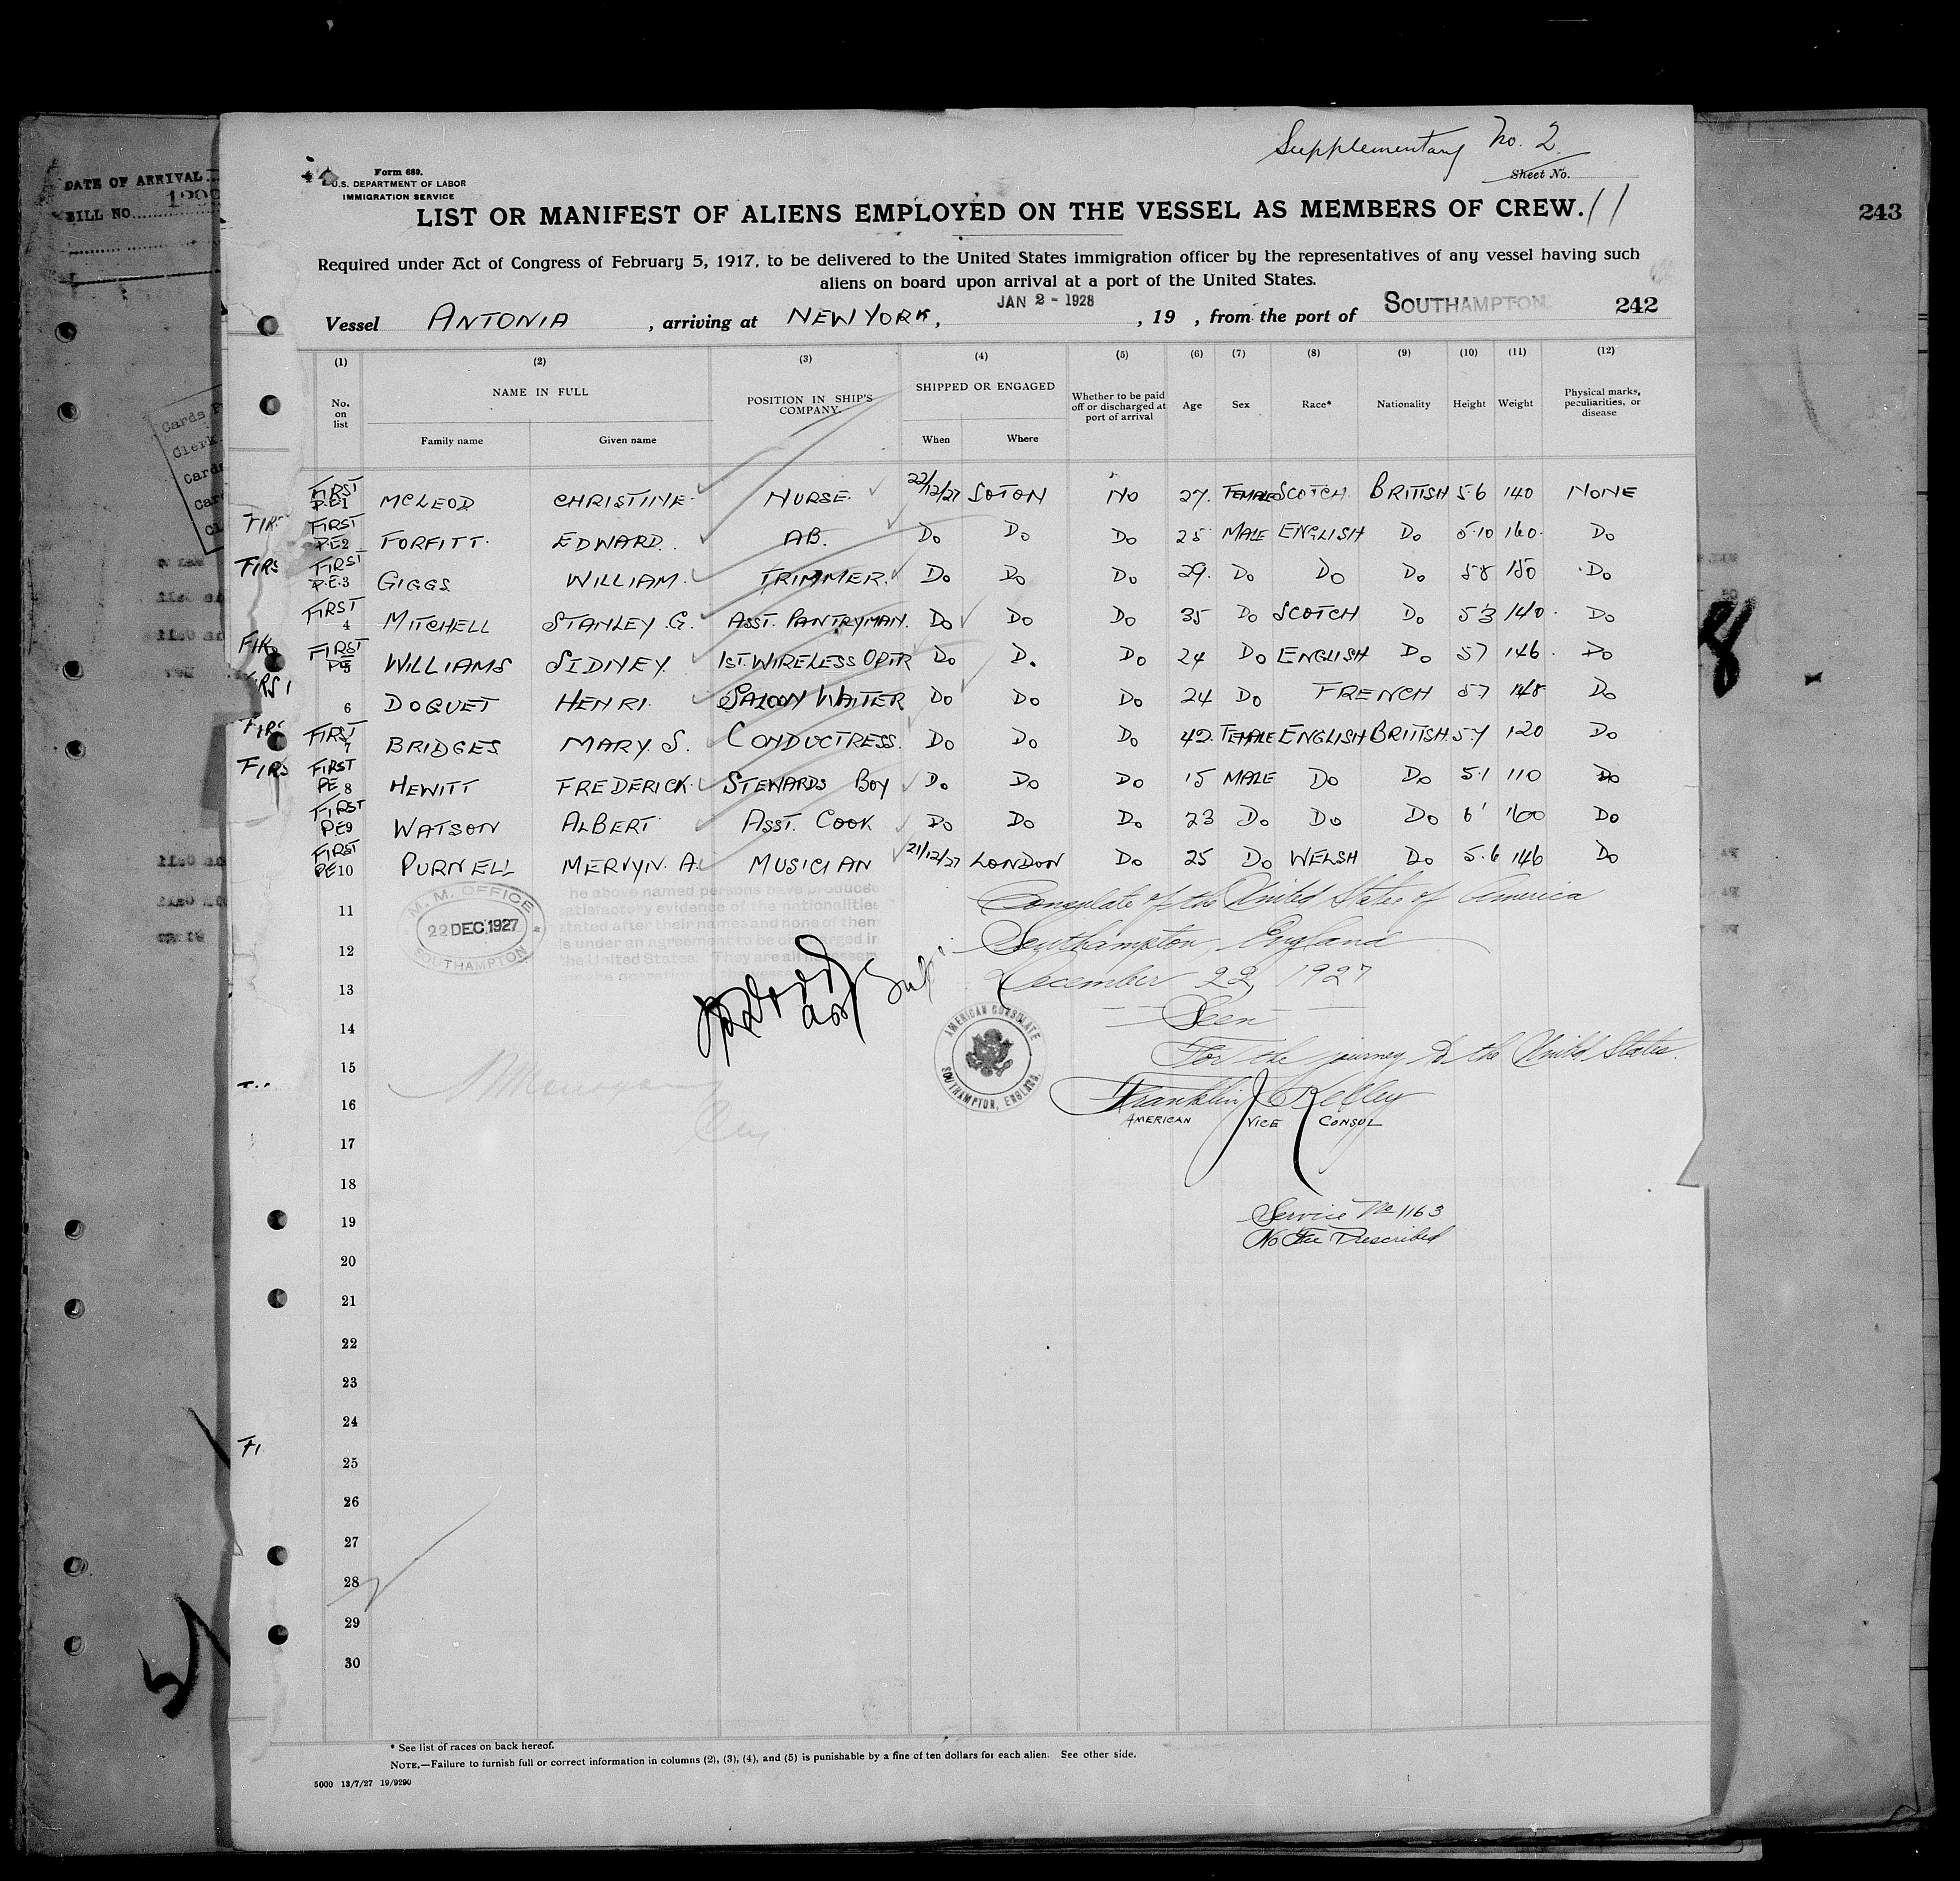 Supplementary No. 2
Form 680.
U.S. DEPARTMENT OF LABOR
IMMIGRATION SERVICE
Sheet No.
LIST OR MANIFEST OF ALIENS EMPLOYED ON THE VESSEL AS MEMBERS OF CREW. 11
Required under Act of Congress of February 5, 1917, to be delivered to the United States immigration officer by the representatives of any vessel having such
aliens on board upon arrival at a port of the United States.
Vessel ANTONIA, arriving at NEW YORK, JAN 2 - 1928, 19 , from the port of SOUTHAMPTON 242
(1) (2) (3) (4) (5) (6) (7) (8) (9) (10) (11) (12)
No. on list NAME IN FULL Family name Given name POSITION IN SHIP'S COMPANY. SHIPPED OR ENGAGED When Where Whether to be paid off or discharged at port of arrival Age Sex Race* Nationality Height Weight Physical marks, peculiarities, or disease
FIRST P.E 1 MCLEOD CHRISTINE NURSE. 22/12/27 SOTON NO 27. FEMALE SCOTCH BRITISH 5.6 140 NONE
FIRST P.E 2 FORFITT. EDWARD. AB. Do Do Do 25 MALE ENGLISH Do 5.10 160. Do
FIRST P.E. 3 GIGGS WILLIAM. TRIMMER. Do Do Do 29. Do Do Do 5 8 150 Do
FIRST 4 MITCHELL STANLEY. G. ASST. PANTRYMAN. Do Do Do 35 Do SCOTCH Do 5'3 140. Do
FIRST PE 5 WILLIAMS SIDNEY. 1ST. WIRELESS OPTR Do D. Do 24 Do ENGLISH Do 5 7 146. Do
6 DOGUET HENRI. SALOON WAITER Do Do Do 24 Do FRENCH 5 7 148 Do
FIRST 7 BRIDGES MARY. S. CONDUCTRESS. Do Do Do 42. FEMALE ENGLISH BRITISH. 5.4 120 Do
FIRST PE 8 HEWITT FREDERICK. STEWARDS BOY Do Do Do 15 MALE Do Do 5.1 110 Do
FIRST PE 9 WATSON ALBERT ASST. COOK Do Do Do 23 Do Do Do 6' 160 Do
FIRST PE 10 PURNELL MERVYN. A. MUSICIAN 21/12/27 LONDON Do 25 Do WELSH Do 5.6 146 Do
M. M. OFFICE
22 DEC 1927
SOUTHAMPTON
The above named persons have produced
satisfactory evidence of the nationalities
stated after their names and none of them
is under an agreement to be discharged in
the United States. They are all necessary
Consulate of the United States of America
Southampton, England
December 22, 1927
Seen
For the journey to the United States.
AMERICAN CONSULATE
SOUTHAMPTON, ENGLAND.
Franklin J. Kelley
AMERICAN VICE CONSUL
Service No 1163
No Fee Prescribed
11
12
13
14
15
16
17
18
19
20
21
22
23
24
25
26
27
28
29
30
* See list of races on back hereof.
NOTE.—Failure to furnish full or correct information in columns (2), (3), (4), and (5) is punishable by a fine of ten dollars for each alien. See other side.
5000 13/7/27 19/9290
DATE OF ARRIVAL
BILL NO.
243